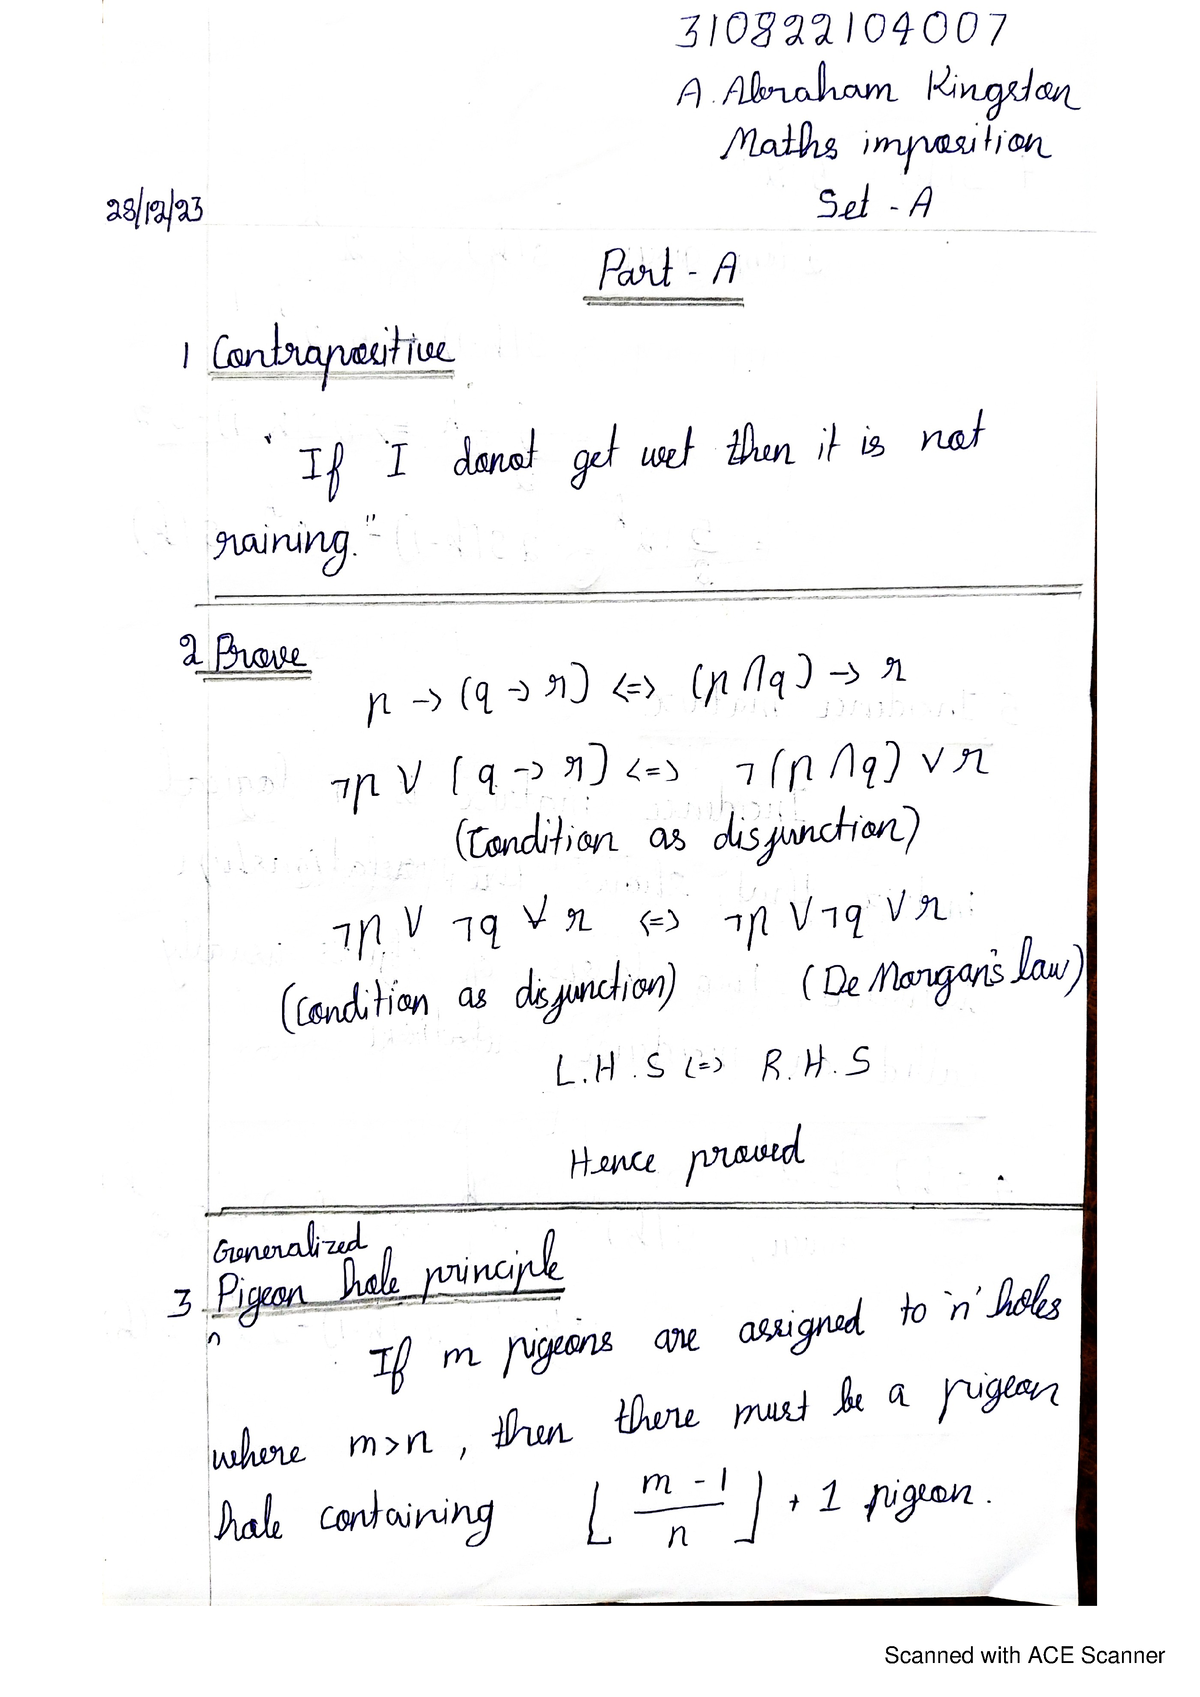 310822104007
A. Abraham Kingston
Maths imposition
28/12/23
Set - A
Part - A
1 Contrapositive
" If I donot get wet then it is not
raining."
2 Prove
p -> (q -> r) <=> (p ∧ q) -> r
¬p ∨ (q -> r) <=> ¬(p ∧ q) ∨ r
(Condition as disjunction)
¬p ∨ ¬q ∨ r <=> ¬p ∨ ¬q ∨ r
(Condition as disjunction) (De Morgan's law)
L.H.S <=> R.H.S
Hence proved
Generalized
3 Pigeon hole principle
If m pigeons are assigned to 'n' holes
where m>n, then there must be a pigeon
hole containing ⌊ m - 1 / n ⌋ + 1 pigeon.
Scanned with ACE Scanner